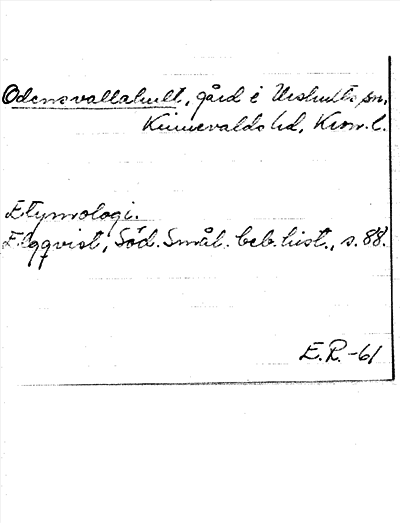 Odensvallahult, gård i Urshults sn,
Kinnevalds hd, Kron. l.
Etymologi.
Elgqvist, Söd. Smål. beb. hist., s. 88.
E.R. -61